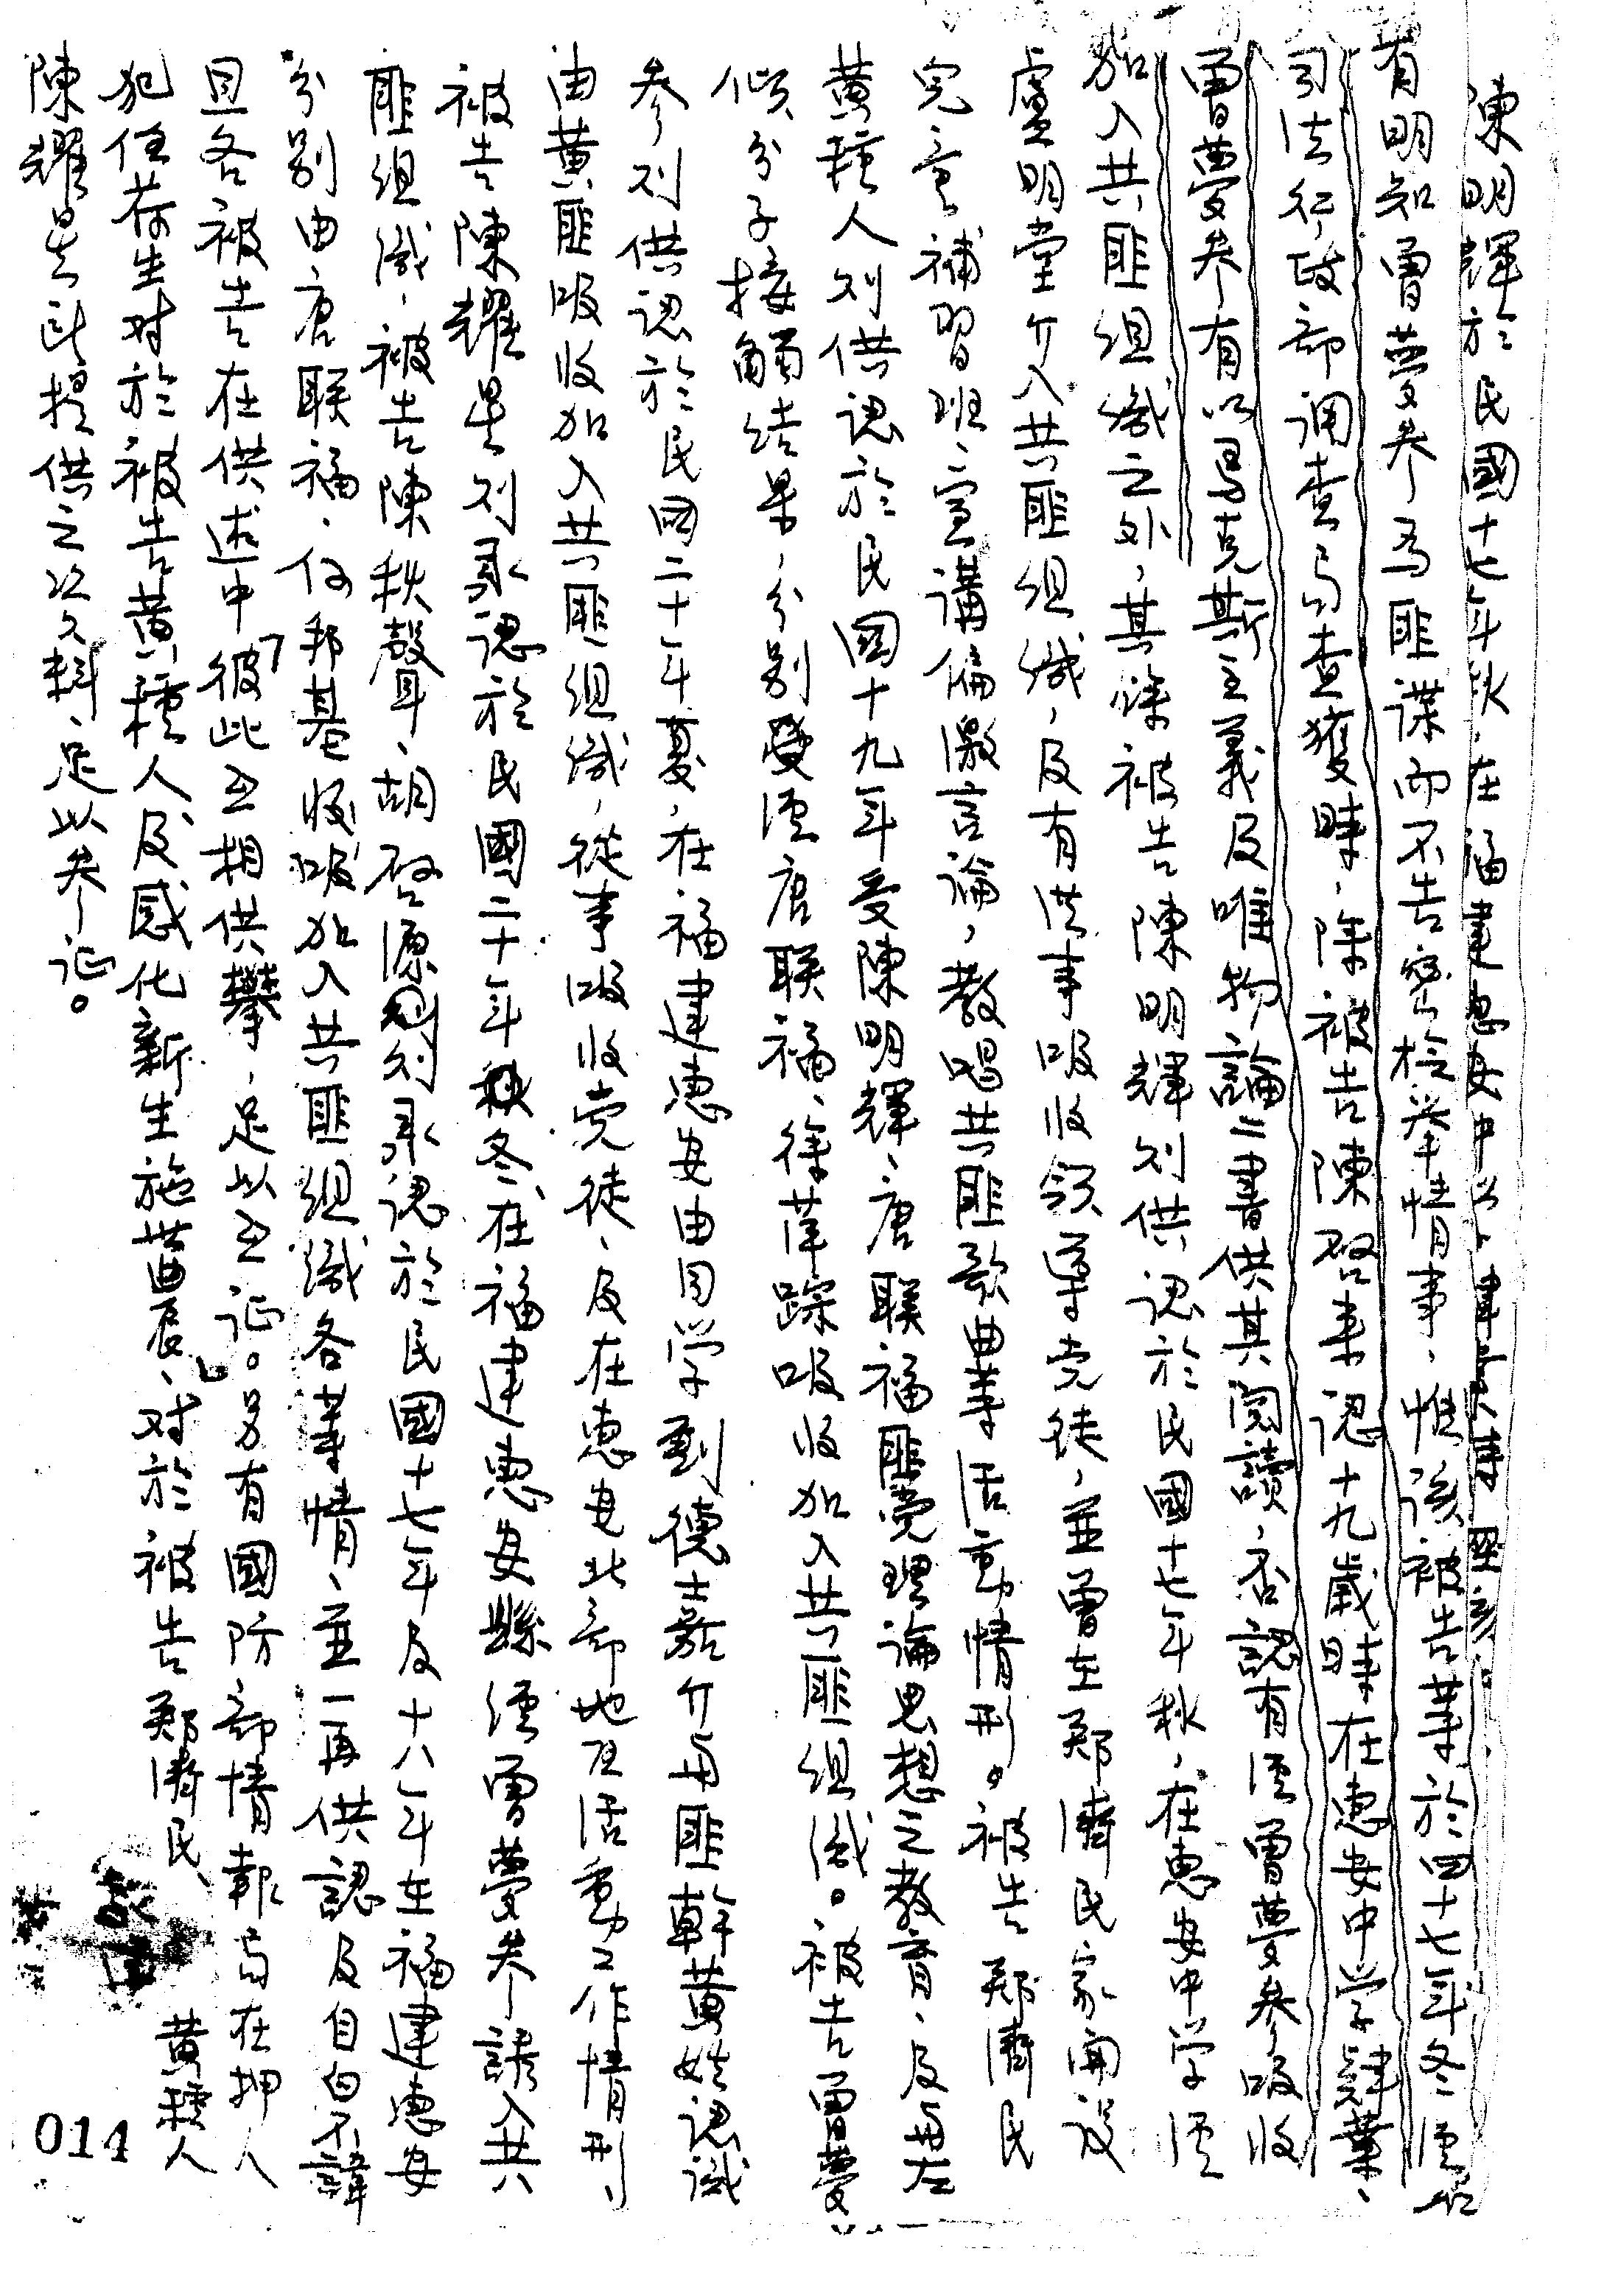 陳明輝於民國十七年秋、在福建惠安中
有明知曾夢參為匪諜而不告密檢举情事、惟該被告葉於四十七年冬經
司法行政部调查局查獲時、除被告陳啓事認十九歲時在惠安中学肄業、
曾夢參有以馬克斯主義及唯物論二書供其閱讀、否認有經曾夢參吸收
加入共匪組織之外、其餘被告陳明輝列供認於民國十七年秋、在惠安中学經
盧明堂介入共匪組織、及有從事吸收領導党徒、並曾在郑濟民家開設
完意補習班、宣講偏激言論、教唱共匪歌曲等活動情形。被告郑濟民
黄種人列供認於民國十九年受陳明輝、唐联福匪党理論思想之教育、及與左
傾分子接觸結果、分别受經唐联福、徐葦踪吸收加入共匪組織。被告曾夢
參列供認於民國二十年夏、在福建惠安由同学劉德嘉介與匪幹黄姓認識
由黄匪吸收加入共匪組織、從事吸收党徒、及在惠安北部地区活動工作情形、
被告陳耀星列承認於民國二十年秋冬在福建惠安縣經曾夢參誘入共
匪組織、被告陳秋聲、胡啓源列承認於民國十七年及十八年在福建惠安
分别由唐联福、何邦基吸收加入共匪組織各等情、並一再供認及自白不諱
且各被告在供述中彼此互相供攀、足以互证。另有國防部情報局在押人
犯任荷生对於被告黄種人及感化新生施世農、对於被告郑濟民、黄種人
陳耀星所提供之资料、足以參证。
014